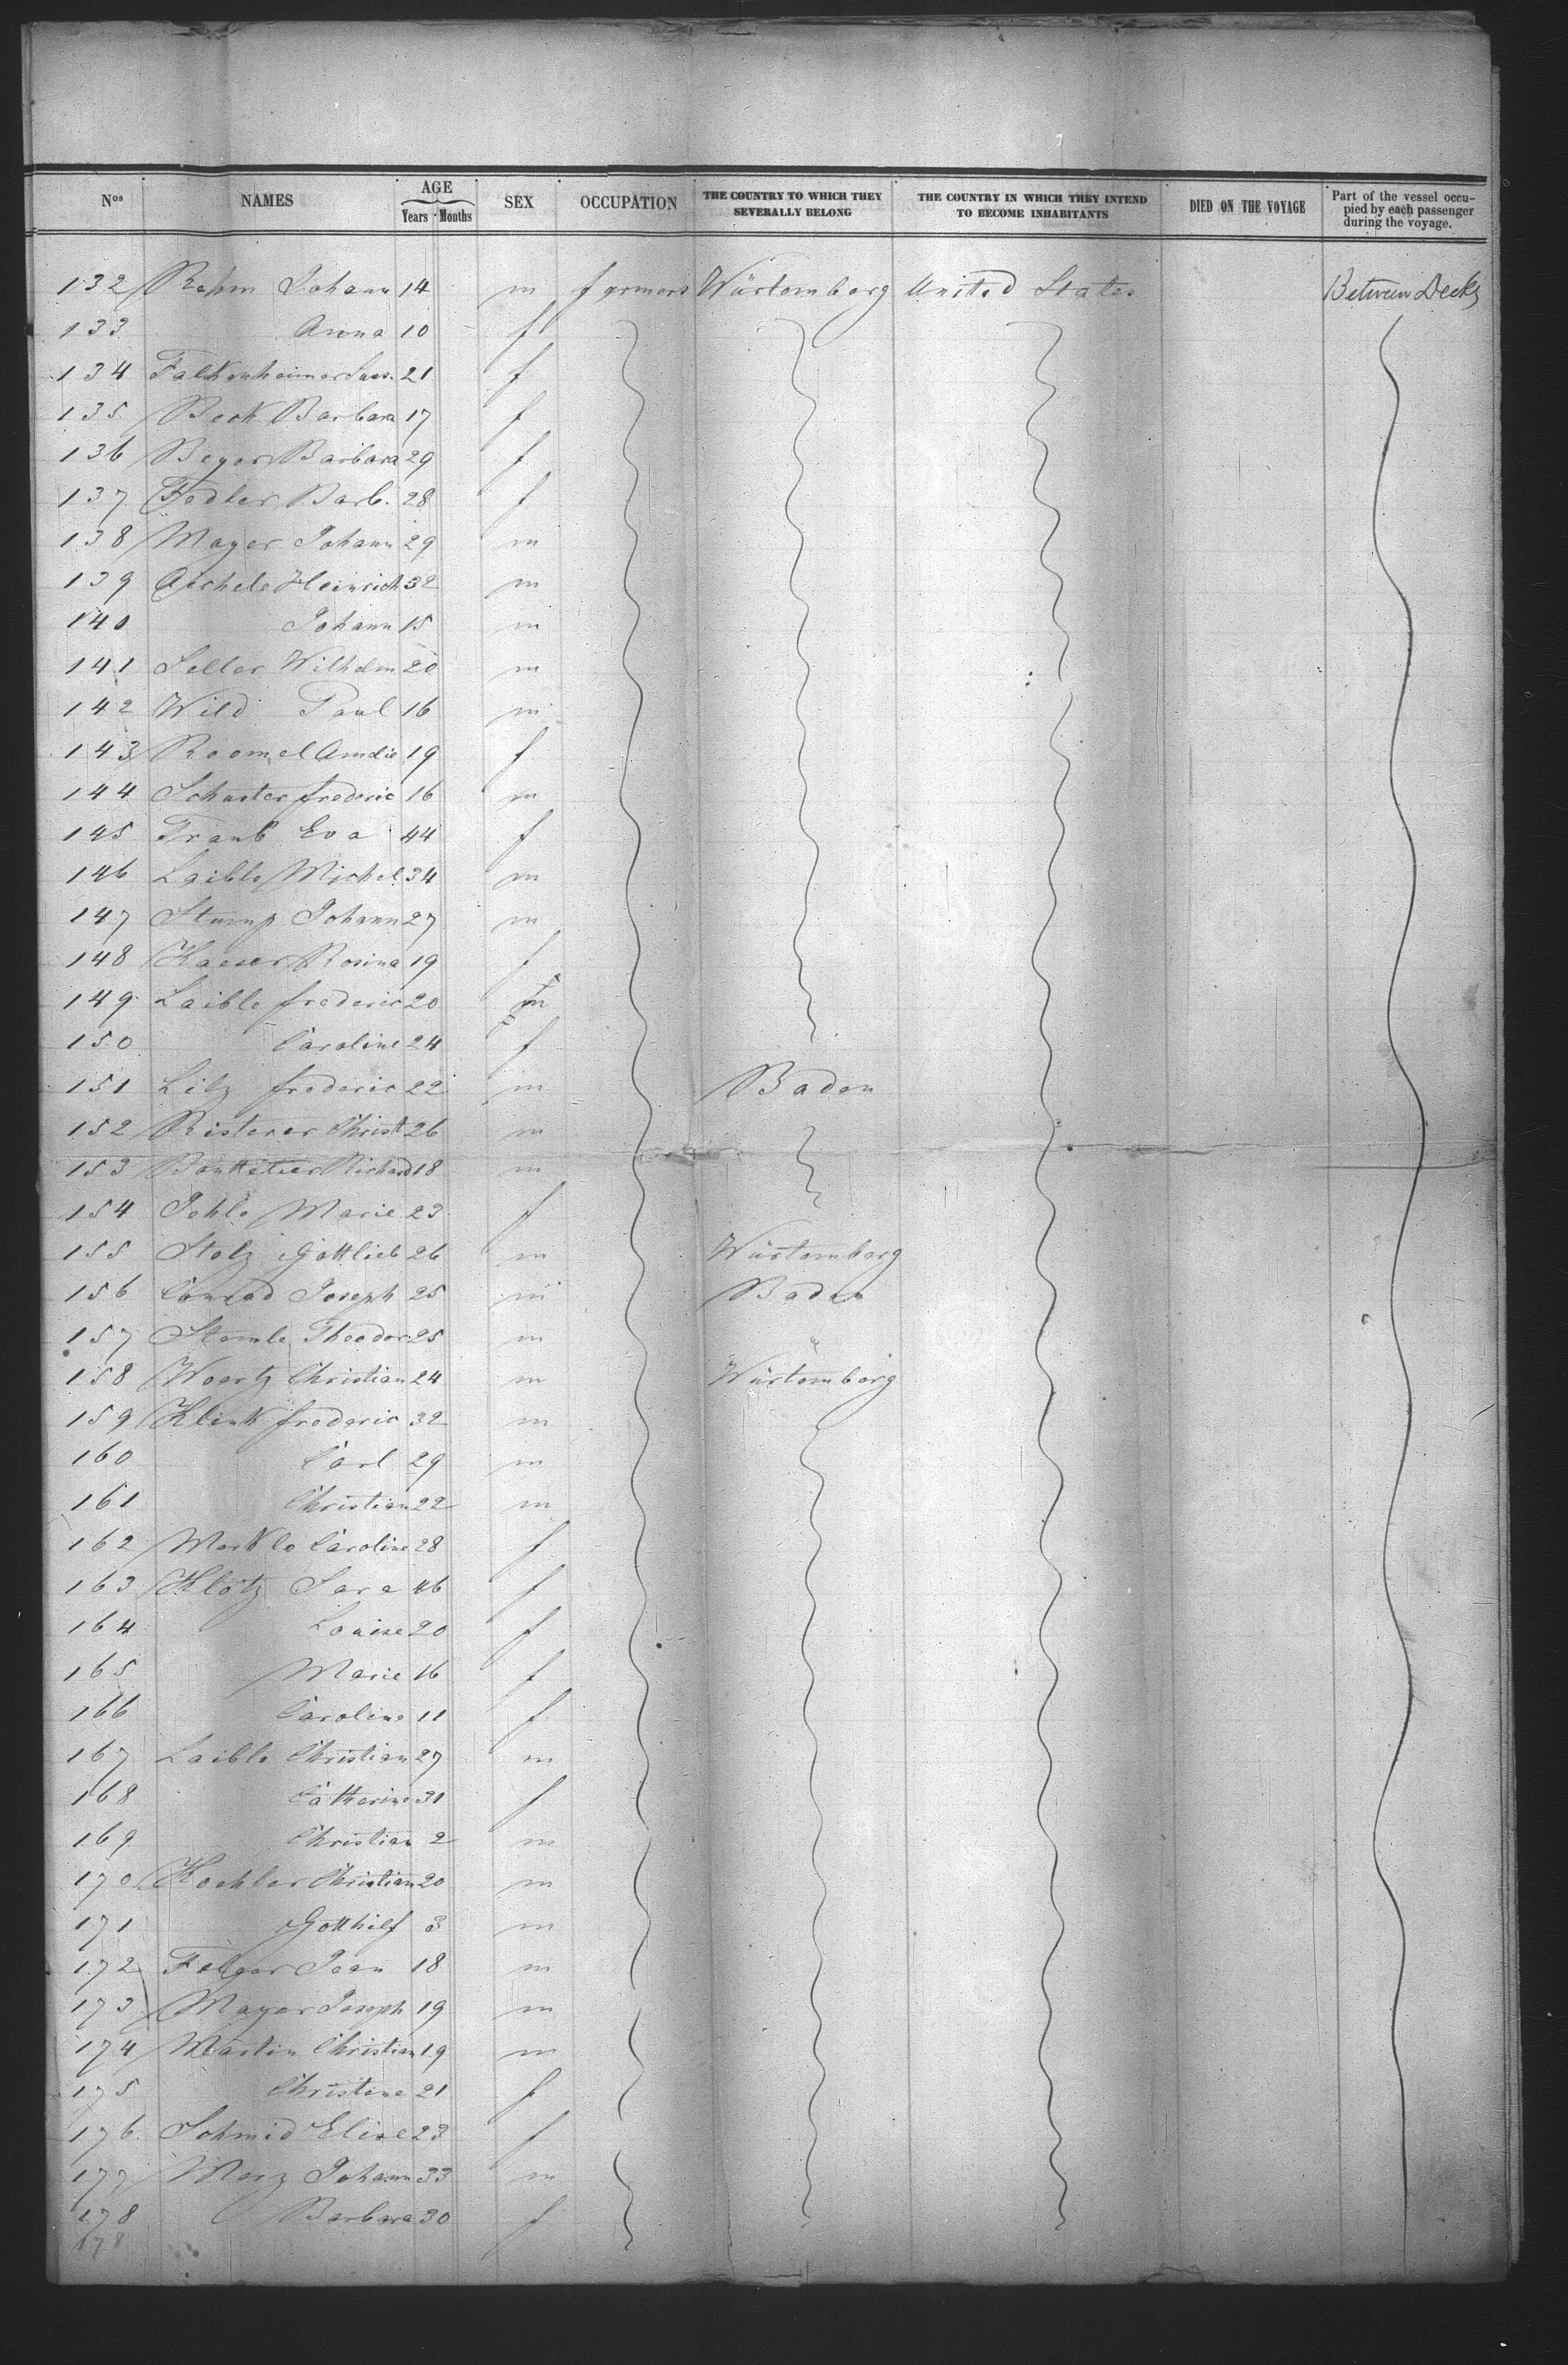 Nos NAMES AGE Years Months SEX OCCUPATION THE COUNTRY TO WHICH THEY SEVERALLY BELONG THE COUNTRY IN WHICH THEY INTEND TO BECOME INHABITANTS DIED ON THE VOYAGE Part of the vessel occupied by each passenger during the voyage.
132 Rehm Johann 14 m farmers Würtemberg United States Between Decks
133 Anna 10 f
134 Falkenheimer 21 f
135 Beck Barbara 17 f
136 Beyer Barbara 29 f
137 Fedler Barb. 28 f
138 Mayer Johann 29 m
139 Aichele Heinrich 32 m
140 Johann 15 m
141 Seller Wilhelm 20 m
142 Wild Paul 16 m
143 Roomel Amelie 19 f
144 Schuster frederic 16 m
145 Traub Eva 44 f
146 Laible Michel 34 m
147 Stump Johann 27 m
148 Kaeser Rosina 19 f
149 Laible frederic 20 m
150 Caroline 24 f
151 Litz frederic 22 m Baden
152 Risterer Christ 26 m
153 Richard 18 m
154 Johle Marie 23 f
155 Stolz Gottlieb 26 m Würtemberg
156 Conrad Joseph 25 m Baden
157 Stemle Theodor 25 m "
158 Woertz Christian 24 m Würtemberg
159 Klink frederic 32 m
160 Carl 29 m
161 Christian 22 m
162 Merkle Caroline 28 f
163 Klotz Sara 46 f
164 Louise 20 f
165 Marie 16 f
166 Caroline 11 f
167 Laible Christian 27 m
168 Catharine 31 f
169 Christian 2 m
170 Koehler Christian 20 m
171 Gotthilf 3 m
172 Felger Jean 18 m
173 Mayer Joseph 19 m
174 Martin Christian 19 m
175 Christine 21 f
176 Schmid Elise 23 f
177 Merz Johann 33 m
178 Barbara 30 f
178